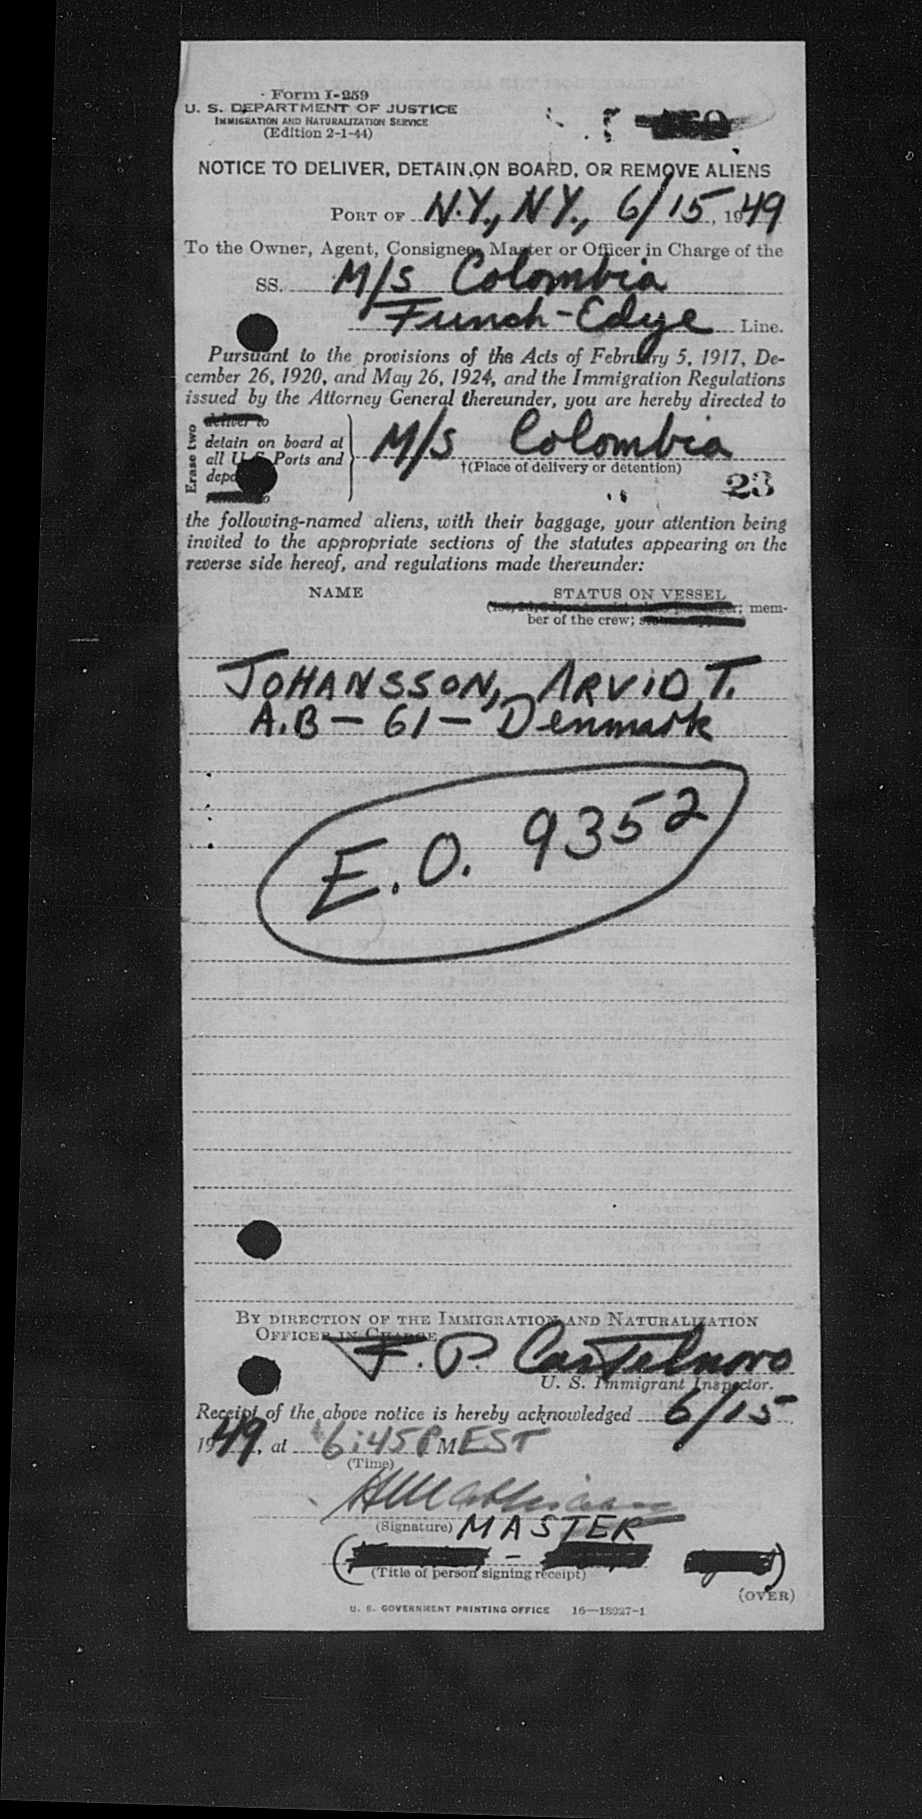 Form I-259
U. S. DEPARTMENT OF JUSTICE
IMMIGRATION AND NATURALIZATION SERVICE
(Edition 2-1-44)
NOTICE TO DELIVER, DETAIN ON BOARD, OR REMOVE ALIENS
PORT OF N.Y., N.Y., 6/15, 1949
To the Owner, Agent, Consignee, Master or Officer in Charge of the
SS. M/S Colombia
Funch-Edye Line.
Pursuant to the provisions of the Acts of February 5, 1917, De-
cember 26, 1920, and May 26, 1924, and the Immigration Regulations
issued by the Attorney General thereunder, you are hereby directed to
Erase two
deliver to
detain on board at
all U. S. Ports and
M/S Colombia
†(Place of delivery or detention)
23
the following-named aliens, with their baggage, your attention being
invited to the appropriate sections of the statutes appearing on the
reverse side hereof, and regulations made thereunder:
NAME STATUS ON VESSEL
mem-
ber of the crew;
JOHANSSON, ARVID T.
A.B - 61 - Denmark
E.O. 9352
BY DIRECTION OF THE IMMIGRATION AND NATURALIZATION
OFFICER IN CHARGE
F. P. Castelnovo
U. S. Immigrant Inspector.
Receipt of the above notice is hereby acknowledged 6/15
1949, at 6:45 P M EST
(Time)
(Signature) MASTER
(Title of person signing receipt)
(OVER)
U. S. GOVERNMENT PRINTING OFFICE 16—18927-1